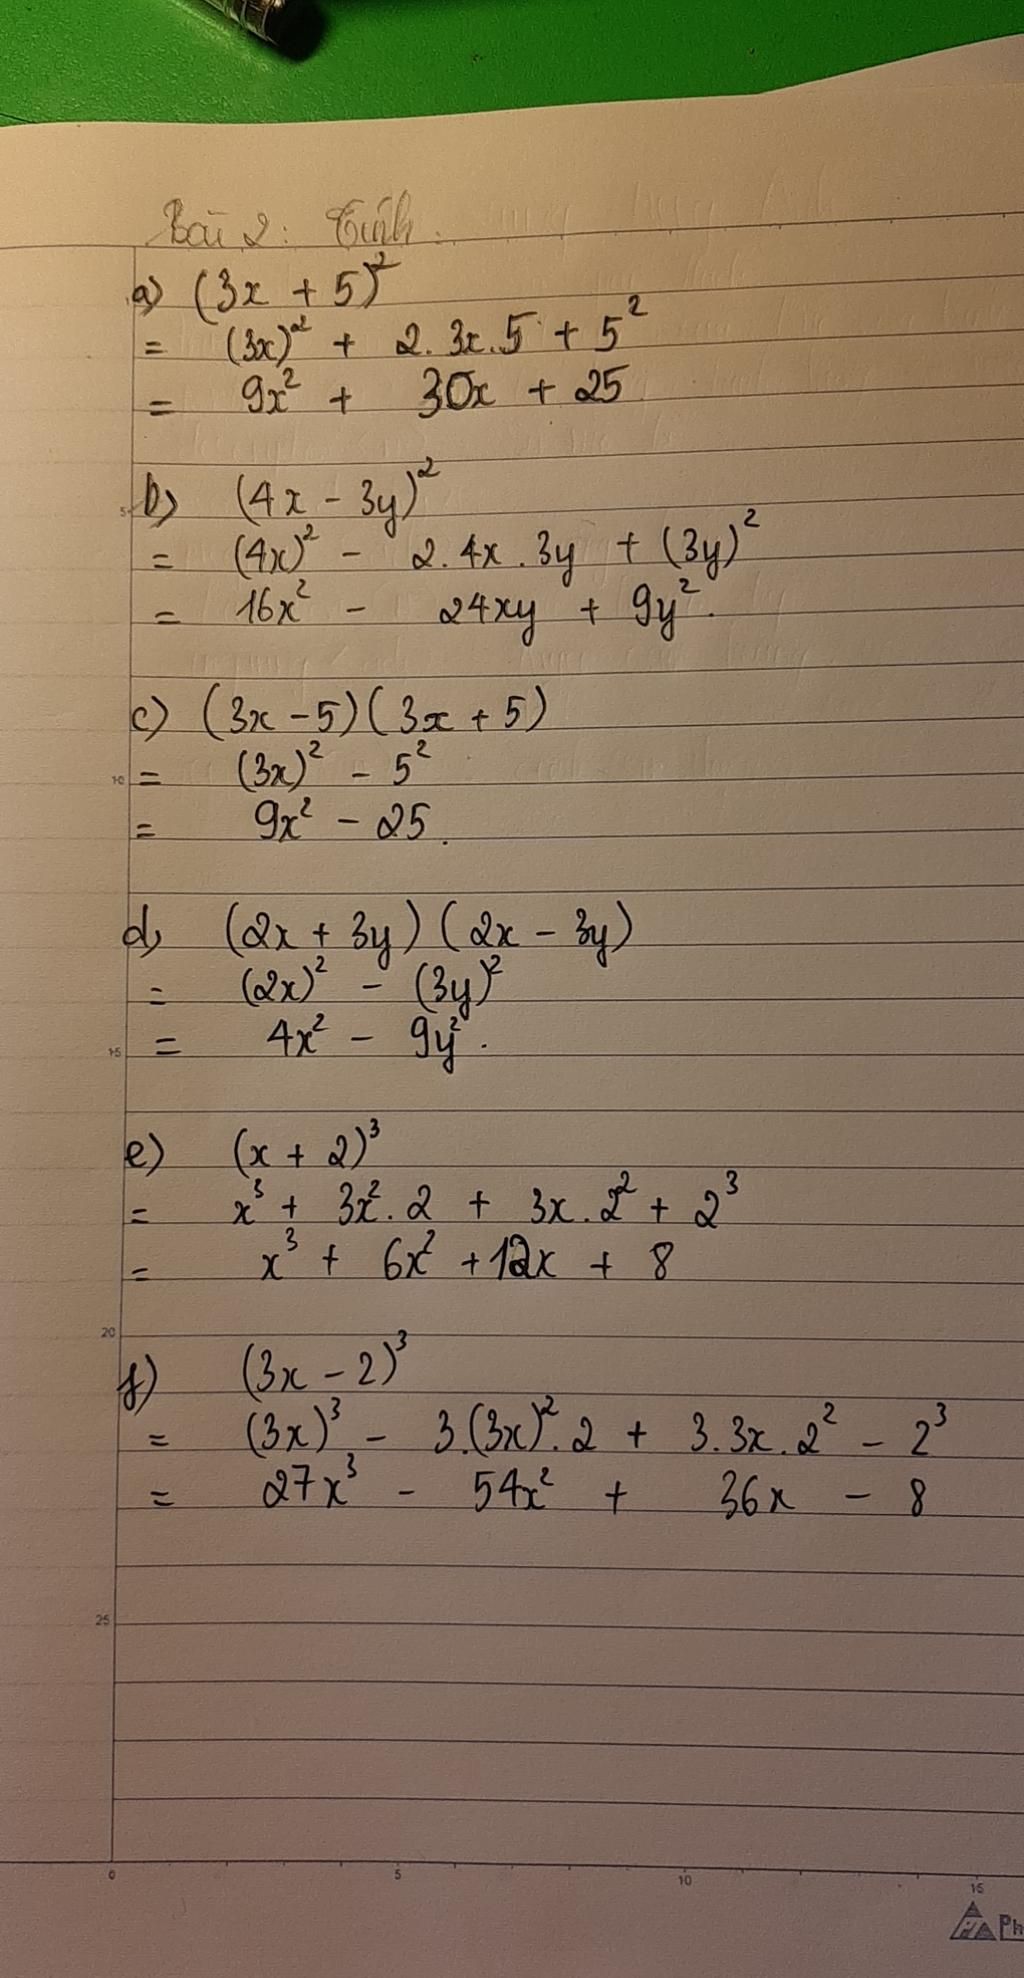 Bài 2: Tính.
a) (3x + 5)²
= (3x)² + 2.3x.5 + 5²
= 9x² + 30x + 25
b) (4x - 3y)²
= (4x)² - 2.4x.3y + (3y)²
= 16x² - 24xy + 9y².
c) (3x - 5)(3x + 5)
= (3x)² - 5²
= 9x² - 25.
d) (2x + 3y)(2x - 3y)
= (2x)² - (3y)²
= 4x² - 9y².
e) (x + 2)³
= x³ + 3x².2 + 3x.2² + 2³
= x³ + 6x² + 12x + 8
f) (3x - 2)³
= (3x)³ - 3.(3x)².2 + 3.3x.2² - 2³
= 27x³ - 54x² + 36x - 8
5
10
15
20
25
0 5 10 15
Ph